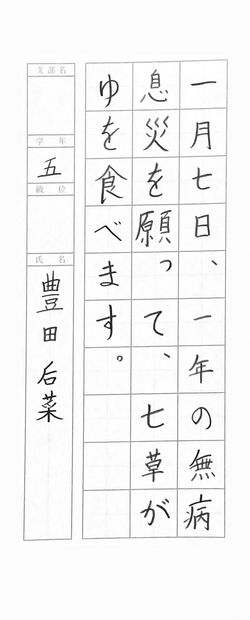 一月七日、一年の無病
息災を願って、七草が
ゆを食べます。
支部名
学年
五
級位
氏名
豊田后菜